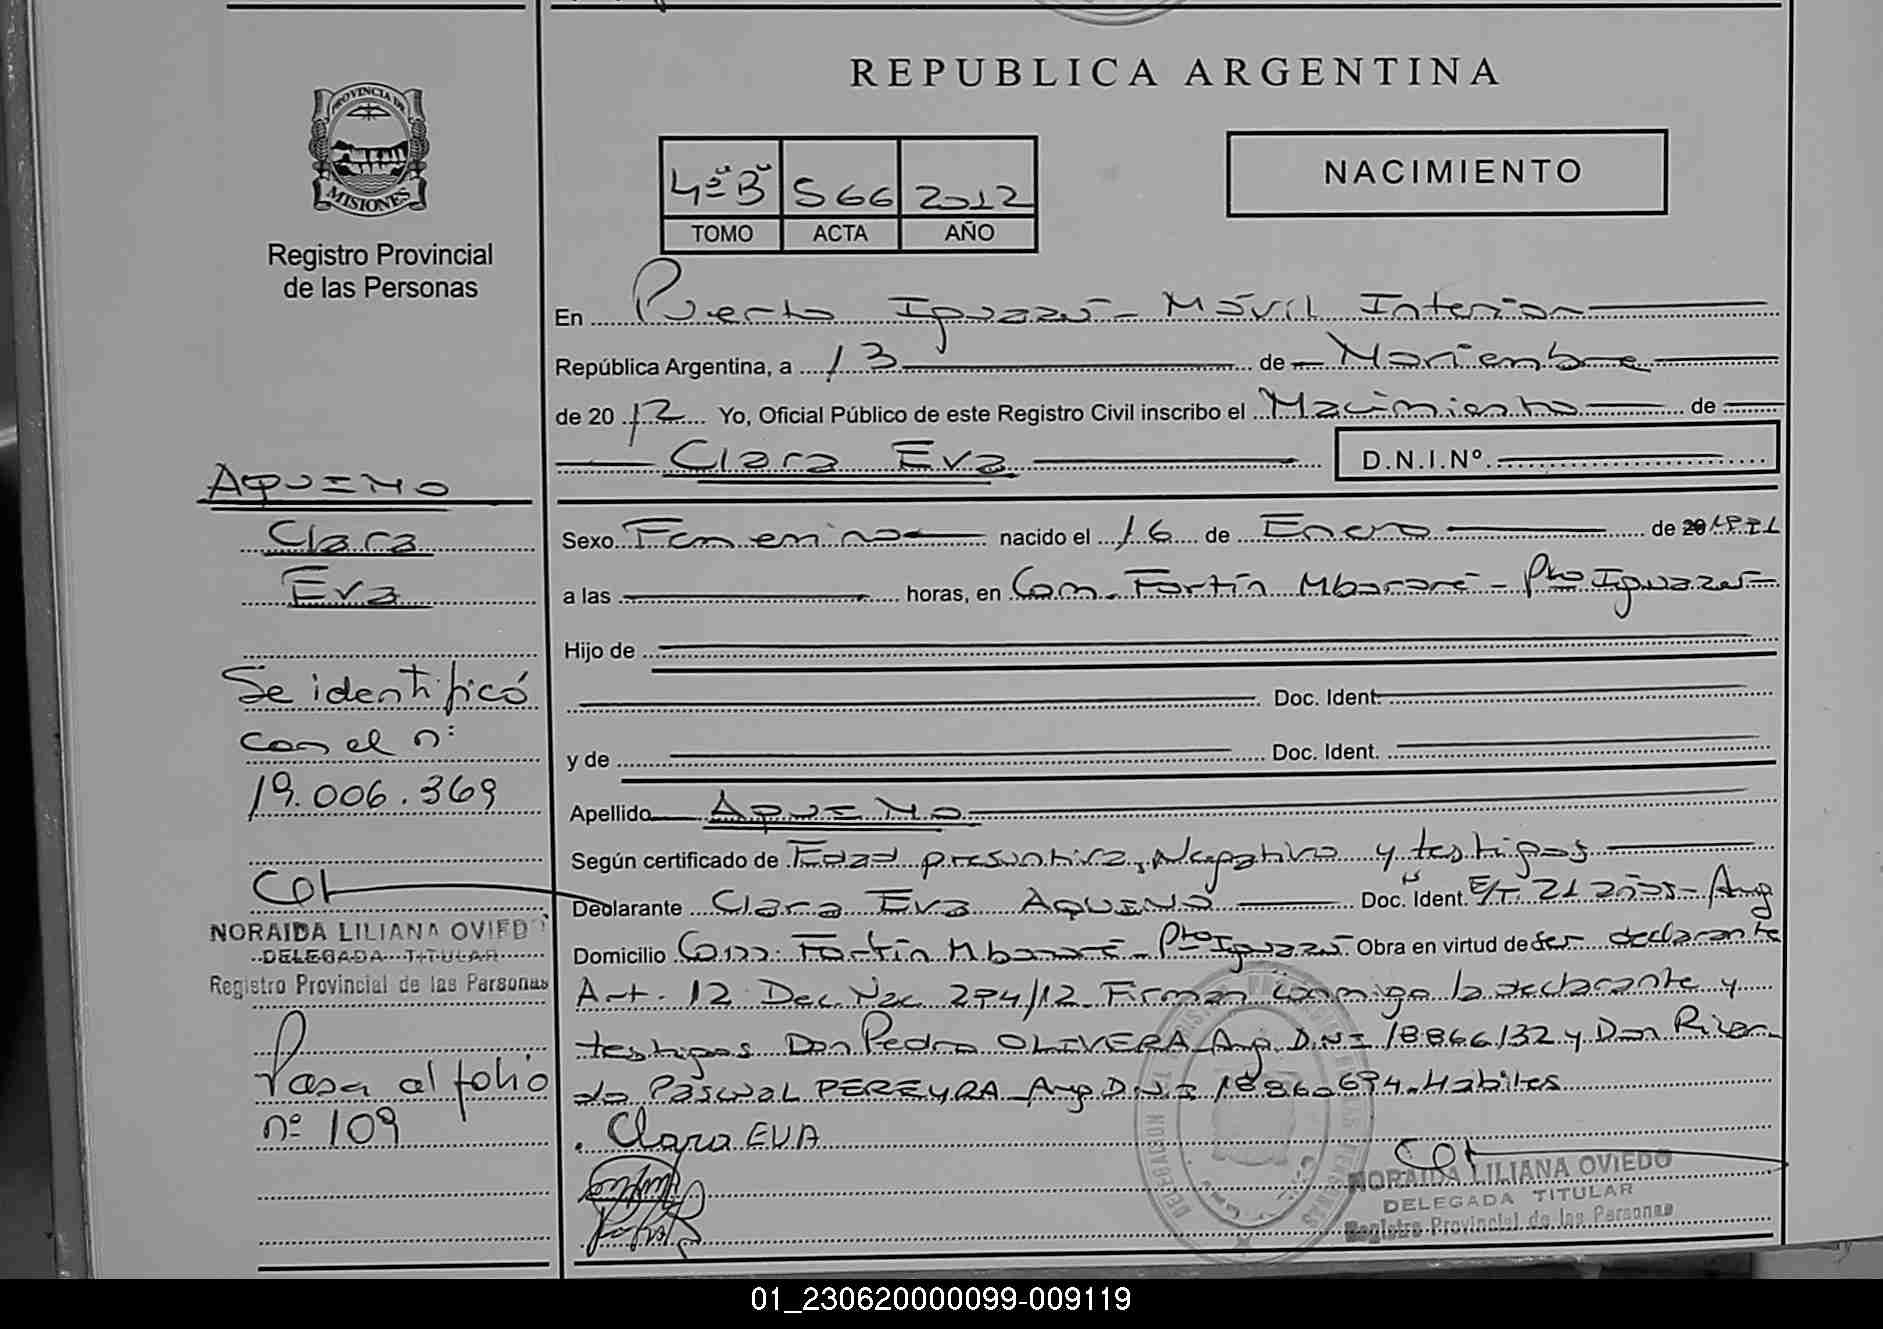 REPUBLICA ARGENTINA
PROVINCIA DE
MISIONES
Registro Provincial
de las Personas
4º "B"
566
2012
TOMO
ACTA
AÑO
NACIMIENTO
En Puerto Iguazú - Móvil Interior
República Argentina, a 13 de Noviembre
de 20 12 Yo, Oficial Público de este Registro Civil inscribo el Nacimiento de
Clara Eva D.N.I.Nº
AQUINO
Clara
Eva
Se identificó
con el nº
19.006.369
NORAIDA LILIANA OVIEDO
DELEGADA TITULAR
Registro Provincial de las Personas
Pasa al folio
nº 109
Sexo Femenino nacido el 16 de Enero de 20 1991
a las horas, en Com. Fortín Mbororé - Pto Iguazú
Hijo de
Doc. Ident.
y de Doc. Ident.
Apellido AQUINO
Según certificado de Edad presuntiva, Negativo y testigos
Declarante Clara Eva AQUINO Doc. Ident. E/T. 21 años - Arg
Domicilio Com. Fortín Mbororé - Pto Iguazú Obra en virtud de Ser declarante
Art. 12 Dec. Nac. 294/12. Firman conmigo la declarante y
testigos Don Pedro OLIVERA Arg. D.N.I 18866132 y Don Ricar-
do PASCUAL PEREYRA Arg D.N.I 18860694. Hábiles
Clara EVA
NORAIDA LILIANA OVIEDO
DELEGADA TITULAR
Registro Provincial de las Personas
01_230620000099-009119